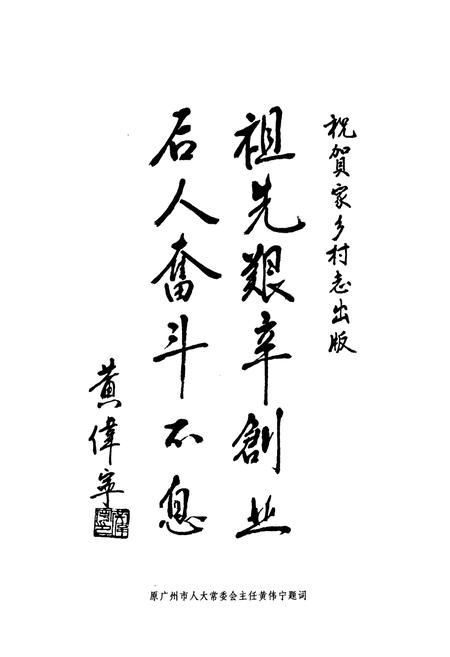 祝贺家乡村志出版
祖先艰辛創业
后人奋斗不息
黄偉寧
原广州市人大常委会主任黄伟宁题词